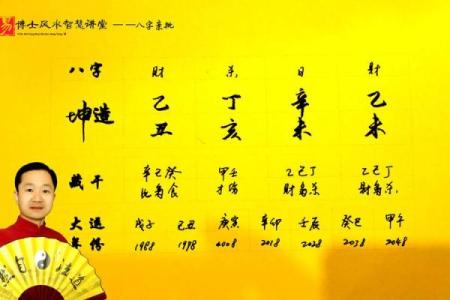 易 博士风水智慧讲堂 ——八字亲批
八字 财 杀 日 财
坤造 乙 丁 辛 乙
丑 亥 未 未
藏干 辛己癸 甲壬 乙己丁 乙己丁
比枭食 才伤 财枭杀 财枭杀
大运 戊子 己丑 庚寅 辛卯 壬辰 癸巳 甲午
年份 1988 1998 2008 2018 2028 2038 2048
道法自然